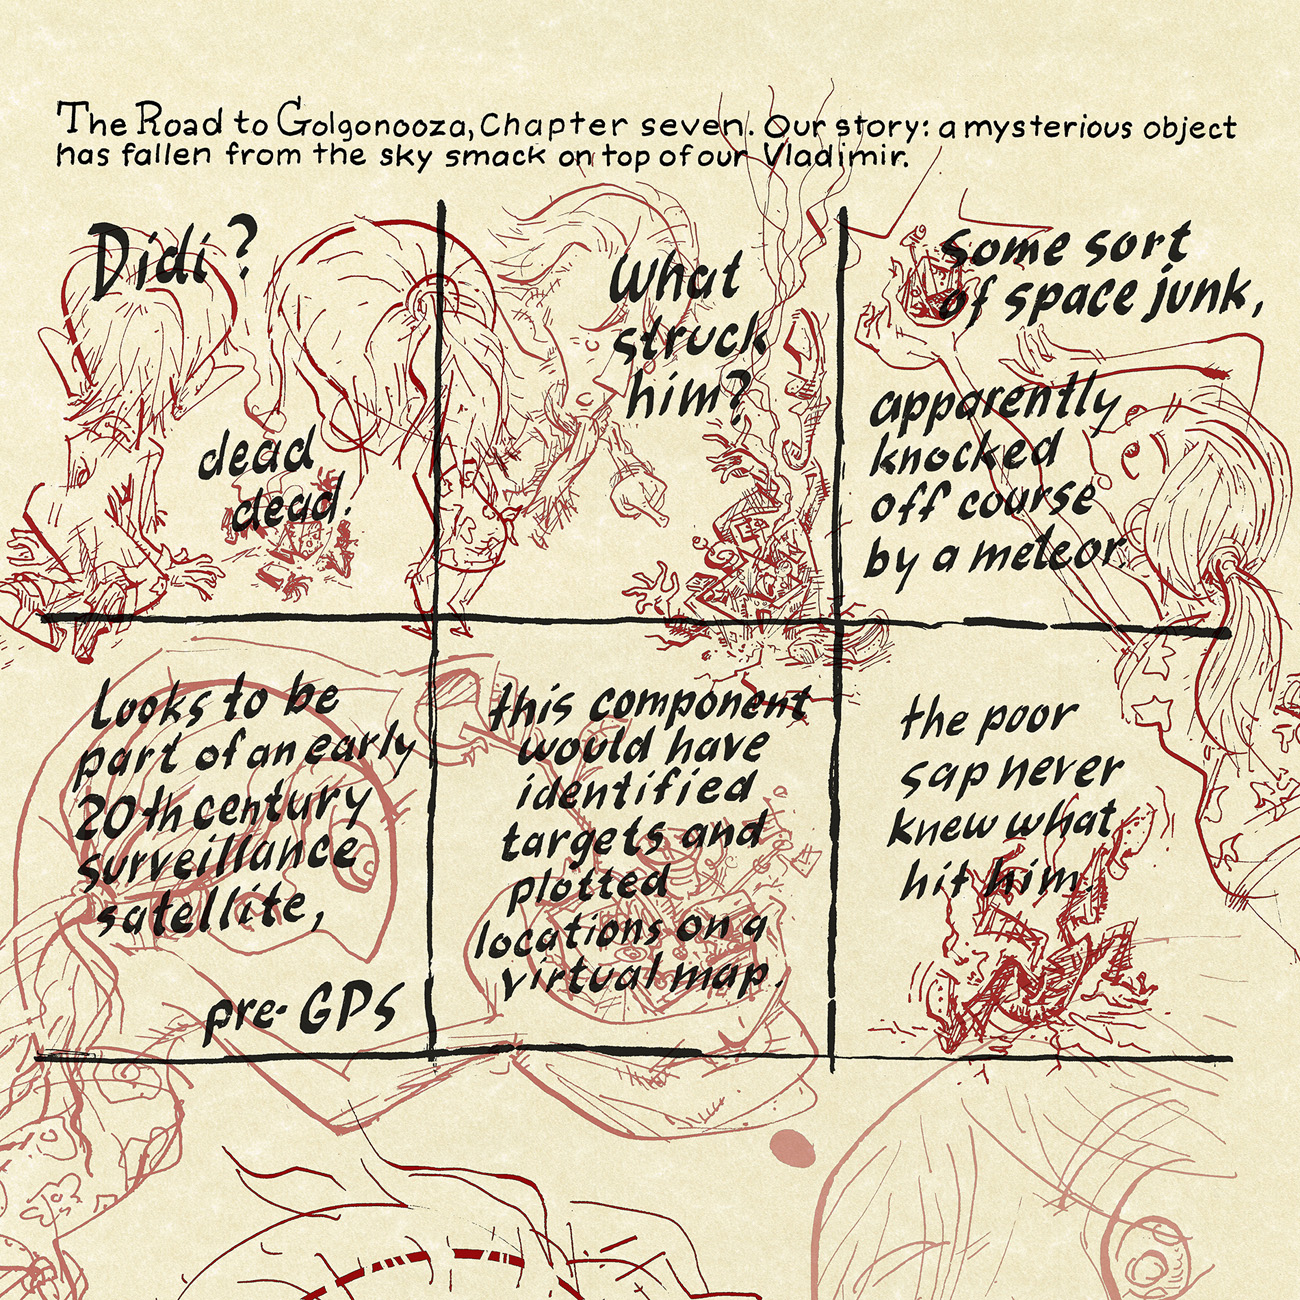 The Road to Golgonooza, Chapter seven. Our story: a mysterious object
has fallen from the sky smack on top of our Vladimir.
Didi?
dead
dead.
What
struck
him?
Some sort
of space junk,
apparently
knocked
off course
by a meteor.
Looks to be
part of an early
20th century
surveillance
satellite,
pre-GPS
this component
would have
identified
targets and
plotted
locations on a
virtual map.
the poor
sap never
knew what
hit him.